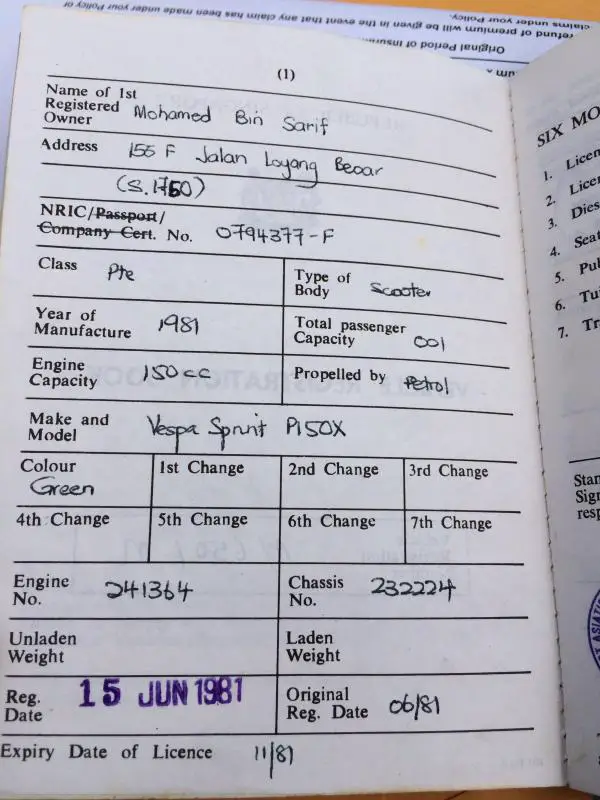 claims under your Policy.
refund of premium will be given in the event that any claim has been made under your Policy or
Original Period of Insur
um
(1)
Name of 1st Registered Owner Mohamed Bin Sarif
Address 155 F Jalan Loyang Besar
(S.1750)
NRIC/Passport/
Company Cert. No. 0794377-F
Class Pte
Type of Body Scooter
Year of Manufacture 1981
Total passenger Capacity 001
Engine Capacity 150cc
Propelled by Petrol
Make and Model Vespa Sprint P150X
Colour Green
1st Change
2nd Change
3rd Change
4th Change
5th Change
6th Change
7th Change
Engine No. 241364
Chassis No. 232224
Unladen Weight
Laden Weight
Reg. Date 15 JUN 1981
Original Reg. Date 06/81
Expiry Date of Licence 11/81
SIX MO
1. Licen
2. Licen
3. Dies
4. Seat
5. Pub
6. Tui
7. Tr
Stan
Sign
resp